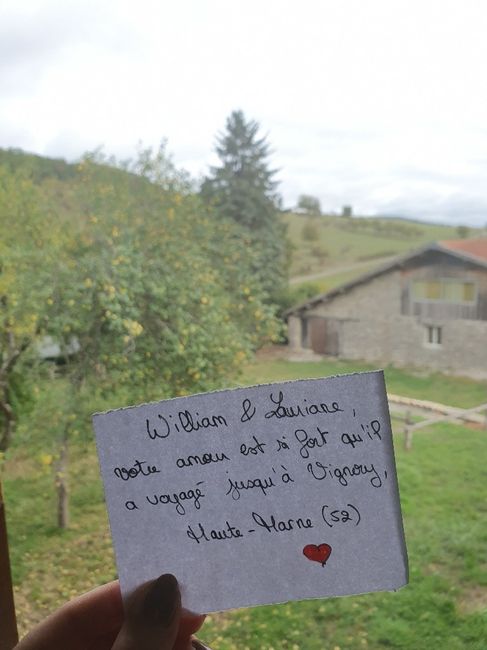 William & Lauriane,
votre amour est si fort qu'il
a voyagé jusqu'à Vignory,
Haute-Marne (52)